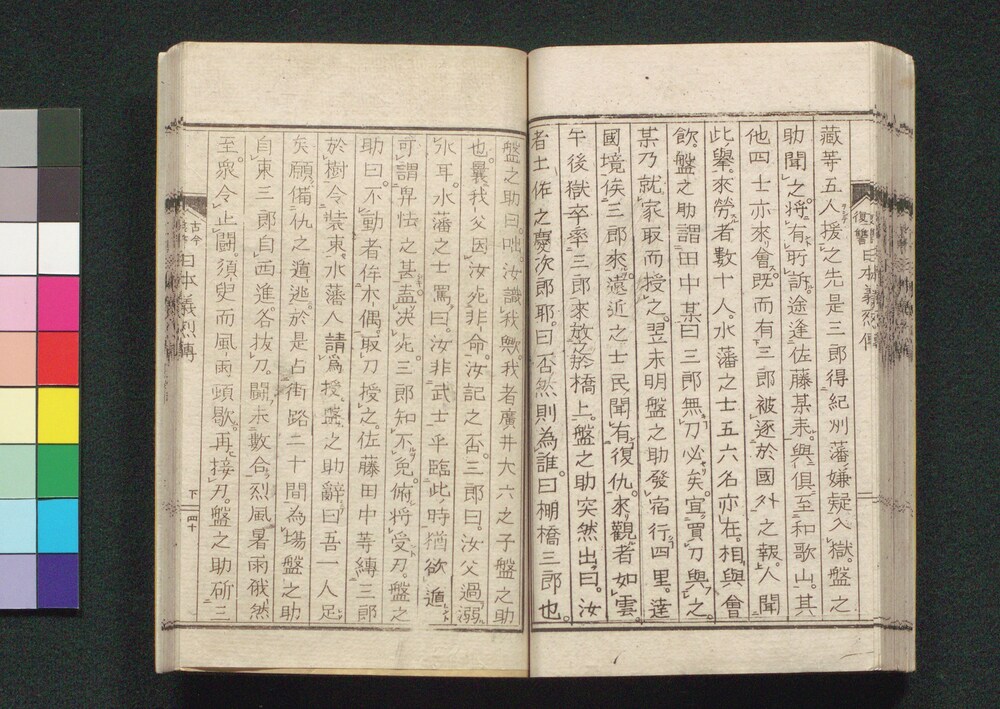 藏等五人援之先是三郎得紀州藩嫌疑入獄。盤之
助聞之。将有所訴。途逢佐藤某来。與俱至和歌山。其
他四士亦來會。既而有三郎被逐於國外之報。人聞
此擧。來勞者數十人。水藩之士五六名亦在。相與會
飲。盤之助謂田中某曰三郎無刀必矣。宜買刀與之。
某乃就家取而授之。翌未明盤之助發宿行四里。達
國境俟三郎來。遠近之士民聞有復仇。來觀者如雲。
午後獄卒率三郎來放之於橋上。盤之助突然出曰。汝
者土佐之慶次郎耶。曰否然則為誰。曰棚橋三郎也。
盤之助曰。咄。汝識我歟。我者廣井大六之子盤之助
也。曩我父因汝死非命。汝記之否。三郎曰。汝父過溺
水耳。水藩之士罵曰。汝非武士乎臨此時猶欲遁
可謂卑怯之甚。盍决死。三郎知不免。俯将受刀。盤之
助曰。不動者侔木偶。取刀授之。佐藤田中等縛三郎
於樹令装束。水藩人請爲援。盤之助辭曰吾一人足
矣願備仇之遁逃。於是占街路二十間為場盤之助
自東三郎自西進。各抜刀。闘未數合。烈風暑雨俄然
至。衆令止闘。須臾而風雨頓歇。再接刀。盤之助斫三
復讐
日本義烈傳
古今
日本義烈傳
下
四十